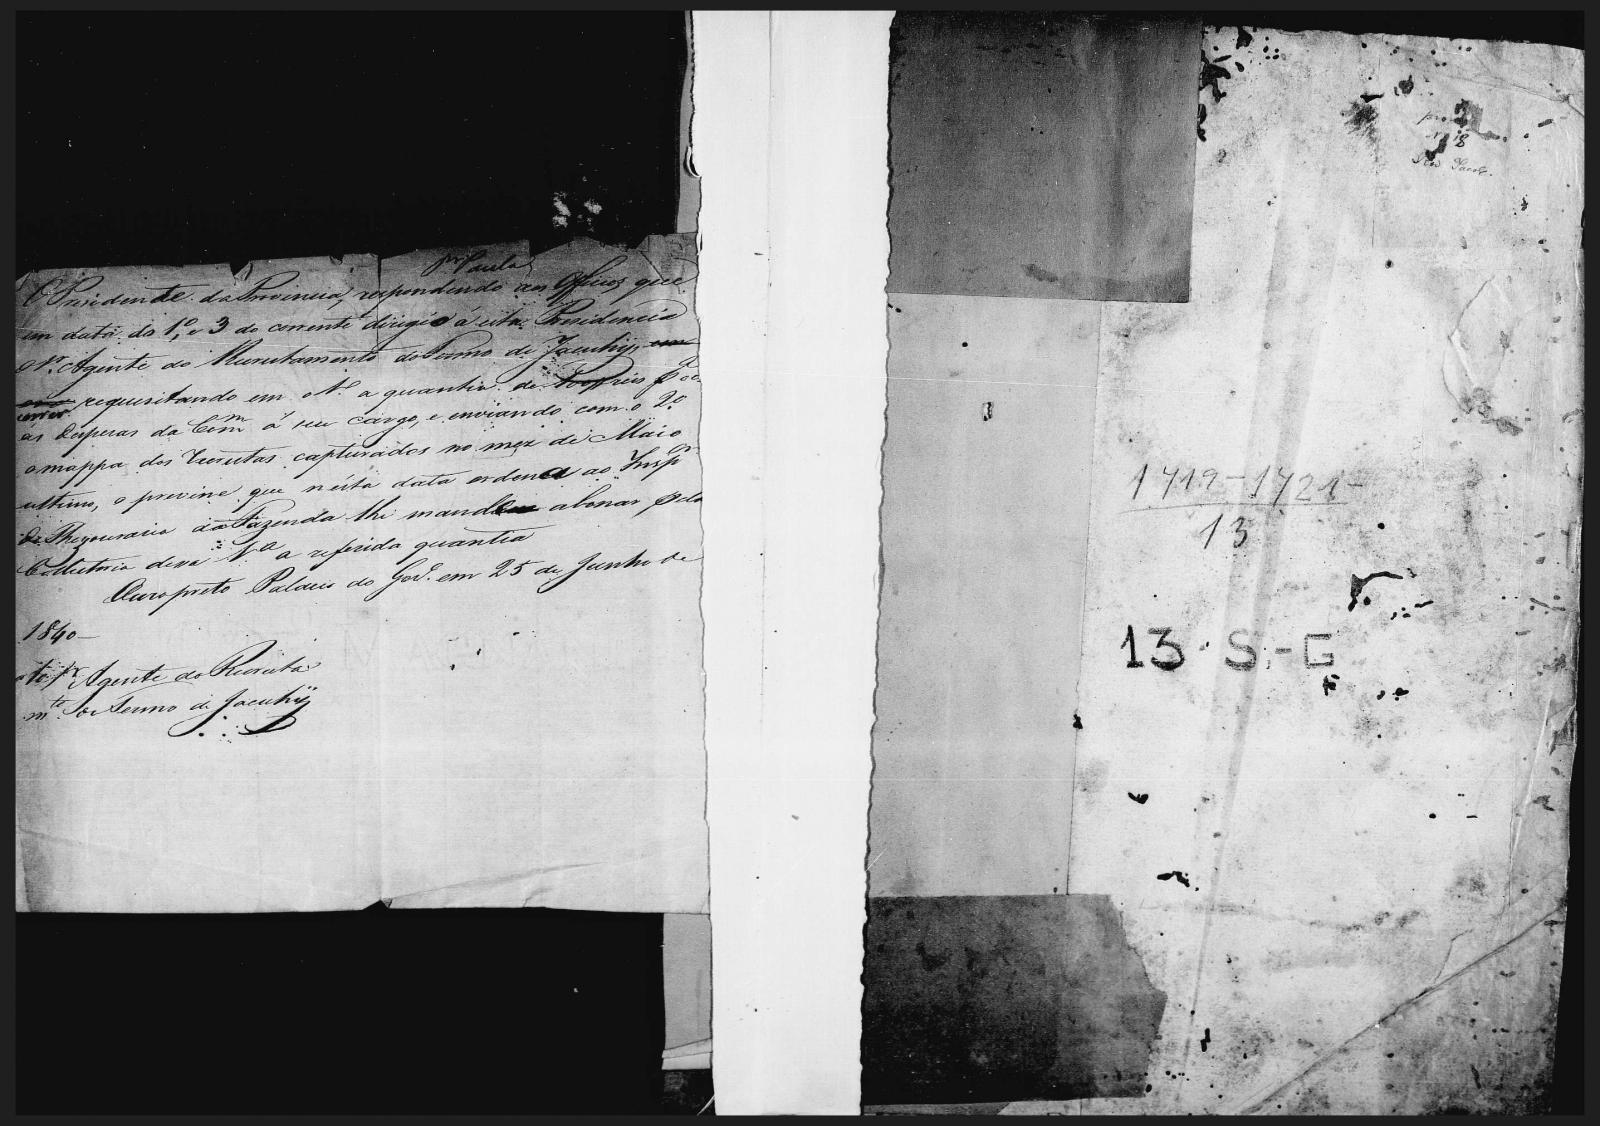 Pr Paula
O Presidente da Provincia, respondendo aos Officios que
em data do 1.º, e 3 do corrente dirigio á esta Presidencia
o Sr. Agente do Recrutamento do Termo de Jacuhÿ,
requisitando em o 1.º a quantia de reis pª oc
as despesas da Com.m á seu cargo, e enviando com o 2.º
o mappa dos recrutas capturados no mez de Maio
ultimo, o previne que nésta data ordena ao Insp.or
da Thezouraria da Fazenda lhe mande abonar pela
Collectoria dessa V.a a referida quantia
Ouro preto Palacio do Gov.º em 25 de Junho de
1840—
Sr. Agente do Recruta
m.to do Termo de Jacuhÿ
18
1719-1721-
13
13 S.-G